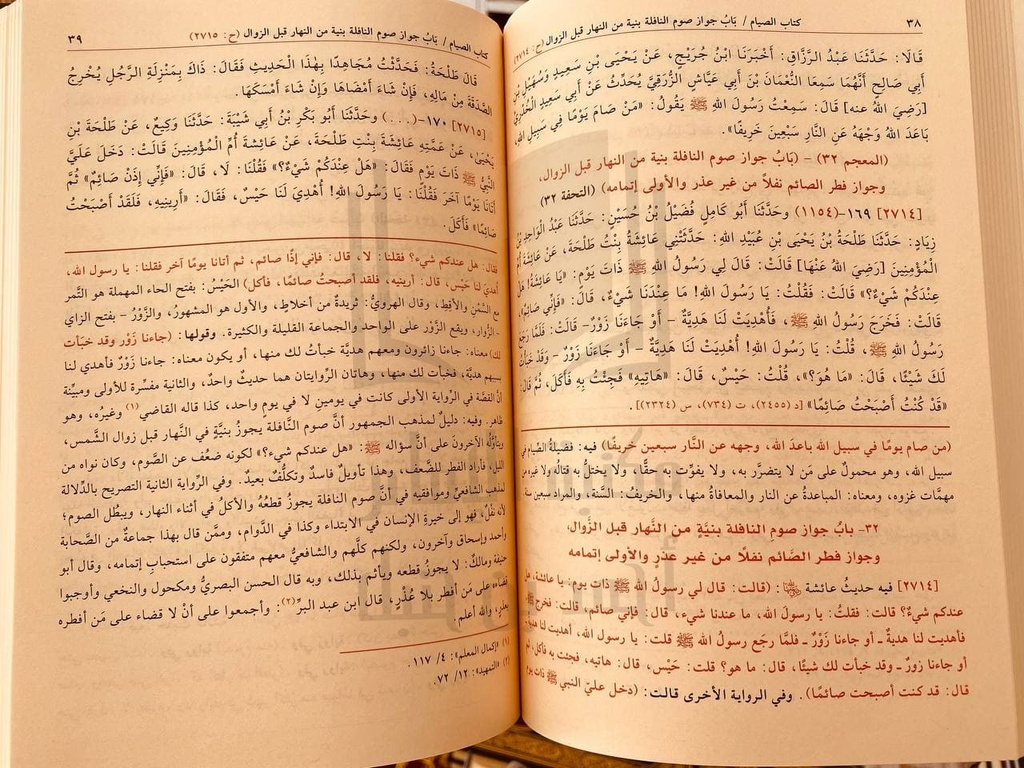 ٣٨ كتاب الصيام / بَابُ جواز صوم النافلة بنية من النهار قبل الزوال (ح: ٢٧١٤)
قَالَا: حَدَّثَنَا عَبْدُ الرَّزَّاقِ: أَخْبَرَنَا ابْنُ جُرَيْجٍ، عَنْ يَحْيَى بْنِ سَعِيدٍ وَسُهَيْلِ بْنِ
أَبِي صَالِحٍ أَنَّهُمَا سَمِعَا النُّعْمَانَ بْنَ أَبِي عَيَّاشٍ الزُّرَقِيَّ يُحَدِّثُ عَنْ أَبِي سَعِيدٍ الْخُدْرِيِّ
[رَضِيَ اللهُ عنه] قَالَ: سَمِعْتُ رَسُولَ اللهِ ﷺ يَقُولُ: «مَنْ صَامَ يَوْمًا فِي سَبِيلِ اللهِ،
بَاعَدَ اللهُ وَجْهَهُ عَنِ النَّارِ سَبْعِينَ خَرِيفًا».
(المعجم ٣٢) - (بَابُ جواز صوم النافلة بنية من النهار قبل الزوال،
وجواز فطر الصائم نفلًا من غير عذر والأولى إتمامه) (التحفة ٣٢)
[٢٧١٤] ١٦٩-(١١٥٤) وحَدَّثَنَا أَبُو كَامِلٍ فُضَيْلُ بْنُ حُسَيْنٍ: حَدَّثَنَا عَبْدُ الْوَاحِدِ بْنُ
زِيَادٍ: حَدَّثَنَا طَلْحَةُ بْنُ يَحْيَى بْنِ عُبَيْدِ اللهِ: حَدَّثَتْنِي عَائِشَةُ بِنْتُ طَلْحَةَ، عَنْ عَائِشَةَ أُمِّ
الْمُؤْمِنِينَ [رَضِيَ اللهُ عَنْهَا] قَالَتْ: قَالَ لِي رَسُولُ اللهِ ﷺ ذَاتَ يَوْمٍ: «يَا عَائِشَةُ! هَلْ
عِنْدَكُمْ شَيْءٌ؟» قَالَتْ: فَقُلْتُ: يَا رَسُولَ اللهِ! مَا عِنْدَنَا شَيْءٌ، قَالَ: «فَإِنِّي صَائِمٌ»،
قَالَتْ: فَخَرَجَ رَسُولُ اللهِ ﷺ، فَأُهْدِيَتْ لَنَا هَدِيَّةٌ - أَوْ جَاءَنَا زَوْرٌ - قَالَتْ: فَلَمَّا رَجَعَ
رَسُولُ اللهِ ﷺ، قُلْتُ: يَا رَسُولَ اللهِ! أُهْدِيَتْ لَنَا هَدِيَّةٌ - أَوْ جَاءَنَا زَوْرٌ - وَقَدْ خَبَأْتُ
لَكَ شَيْئًا، قَالَ: «مَا هُوَ؟»، قُلْتُ: حَيْسٌ، قَالَ: «هَاتِيهِ» فَجِئْتُ بِهِ فَأَكَلَ، ثُمَّ قَالَ:
«قَدْ كُنْتُ أَصْبَحْتُ صَائِمًا» [د (٢٤٥٥)، ت (٧٣٤)، س (٢٣٢٤)].
(من صام يومًا في سبيل الله باعدَ الله، وجهه عن النَّار سبعين خريفًا) فيه: فضيلةُ الصِّيام في
سبيل الله، وهو محمولٌ على مَن لا يتضرَّر به، ولا يفوِّت به حقًّا، ولا يختلُّ به قتالُه ولا غيره من
مهمَّات غزوه، ومعناه: المباعدةُ عن النار والمعافاةُ منها، والخريفُ: السَّنة، والمراد سبعين سنة.
٣٢- بابُ جواز صوم النافلة بنيَّةٍ من النَّهار قبل الزَّوال،
وجواز فطر الصَّائم نفلًا من غير عذرٍ والأولى إتمامه
[٢٧١٤] فيه حديثُ عائشة ﵂: (قالت: قال لي رسولُ الله ﷺ ذات يوم: يا عائشة، هل
عندكم شيءٌ؟ قالت: فقلتُ: يا رسولَ الله، ما عندنا شيء، قال: فإنِّي صائم، قالت: فخرج
فأهديت لنا هديةٌ ـ أو جاءنا زَوْرٌ ـ فلمَّا رجع رسول الله ﷺ قلت: يا رسول الله، أهديت لنا هديةٌ
أو جاءنا زورٌ ـ وقد خبأت لك شيئًا، قال: ما هو؟ قلت: حَيْس، قال: هاتيه، فجئت به فأكل، ثم
قال: قد كنت أصبحت صائمًا). وفي الرواية الأخرى قالت: (دخل عليّ النبي ﷺ ذات يوم
كتاب الصيام / بَابُ جواز صوم النافلة بنية من النهار قبل الزوال (ح: ٢٧١٥) ٣٩
قَالَ طَلْحَةُ: فَحَدَّثْتُ مُجَاهِدًا بِهٰذَا الْحَدِيثِ فَقَالَ: ذَاكَ بِمَنْزِلَةِ الرَّجُلِ يُخْرِجُ
الصَّدَقَةَ مِنْ مَالِهِ، فَإِنْ شَاءَ أَمْضَاهَا وَإِنْ شَاءَ أَمْسَكَهَا.
[٢٧١٥] ١٧٠-(...) وحَدَّثَنَا أَبُو بَكْرِ بْنُ أَبِي شَيْبَةَ: حَدَّثَنَا وَكِيعٌ، عَنْ طَلْحَةَ بْنِ
يَحْيَىٰ، عَنْ عَمَّتِهِ عَائِشَةَ بِنْتِ طَلْحَةَ، عَنْ عَائِشَةَ أُمِّ الْمُؤْمِنِينَ قَالَتْ: دَخَلَ عَلَيَّ
النَّبِيُّ ﷺ ذَاتَ يَوْمٍ فَقَالَ: «هَلْ عِنْدَكُمْ شَيْءٌ؟» فَقُلْنَا: لَا، قَالَ: «فَإِنِّي إِذَنْ صَائِمٌ» ثُمَّ
أَتَانَا يَوْمًا آخَرَ فَقُلْنَا: يَا رَسُولَ اللهِ! أُهْدِيَ لَنَا حَيْسٌ، فَقَالَ: «أَرِينِيهِ، فَلَقَدْ أَصْبَحْتُ
صَائِمًا» فَأَكَلَ.
فقال: هل عندكم شيء؟ فقلنا: لا، قال: فإني إذًا صائم، ثم أتانا يومًا آخر فقلنا: يا رسول الله،
أهدي لنا حيْس، قال: أرينيه، فلقد أصبحتُ صائمًا، فأكل) الحَيْسُ: بفتح الحاء المهملة هو التَّمر
مع السَّمْن والأَقِط، وقال الهرويُّ: ثريدةٌ من أخلاطٍ، والأول هو المشهورُ، والزَّوْرُ ـ بفتح الزاي
ـ الزُّوار، ويقع الزَّوْر على الواحد والجماعة القليلة والكثيرة. وقولها: (جاءنا زَوْر وقد خبأت
لك) معناه: جاءنا زائرون ومعهم هديَّة خبأتُ لك منها، أو يكون معناه: جاءنا زَوْرٌ فأهدي لنا
بسببهم هديَّة، فخبأت لك منها، وهاتان الرِّوايتان هما حديثٌ واحدٌ، والثانية مفسِّرة للأولى ومبيِّنة
أنَّ القصَّة في الرِّواية الأولى كانت في يومين لا في يومٍ واحد، كذا قاله القاضي(١) وغيرُه، وهو
ظاهر. وفيه: دليلٌ لمذهب الجمهور أنَّ صوم النَّافلة يجوزُ بنيَّةٍ في النَّهار قبل زوال الشَّمس،
ويتأوَّلُه الآخرونَ على أنَّ سؤاله ﷺ: «هل عندكم شيء؟» لكونه ضعُف عن الصَّوم، وكان نواه من
الليل، فأراد الفطر للضَّعف، وهذا تأويلٌ فاسدٌ وتكلُّفٌ بعيدٌ. وفي الرِّواية الثانية التصريح بالدَّلالة
لمذهب الشافعيِّ وموافقيه في أنَّ صومَ النافلة يجوزُ قطعُهُ والأكلُ في أثناء النهار، ويبطُل الصوم؛
لأنه نفلٌ، فهو إلى خيرةِ الإنسان في الابتداء وكذا في الدَّوام، وممَّن قال بهذا جماعةٌ من الصَّحابة
وأحمد وإسحاق وآخرون، ولكنهم كلُّهم والشافعيُّ معهم متفقون على استحباب إتمامه، وقال أبو
حنيفة ومالكٌ: لا يجوزُ قطعه ويأثم بذلك، وبه قال الحسن البصريُّ ومكحول والنخعي وأوجبوا
قضاءه على مَن أفطر بلا عُذْرٍ، قال ابن عبد البر(٢): وأجمعوا على أنْ لا قضاء على مَن أفطره
بعذرٍ، والله أعلم.
(١) «إكمال المعلم»: ٤/ ١١٧.
(٢) «التمهيد»: ١٢/ ٧٢.